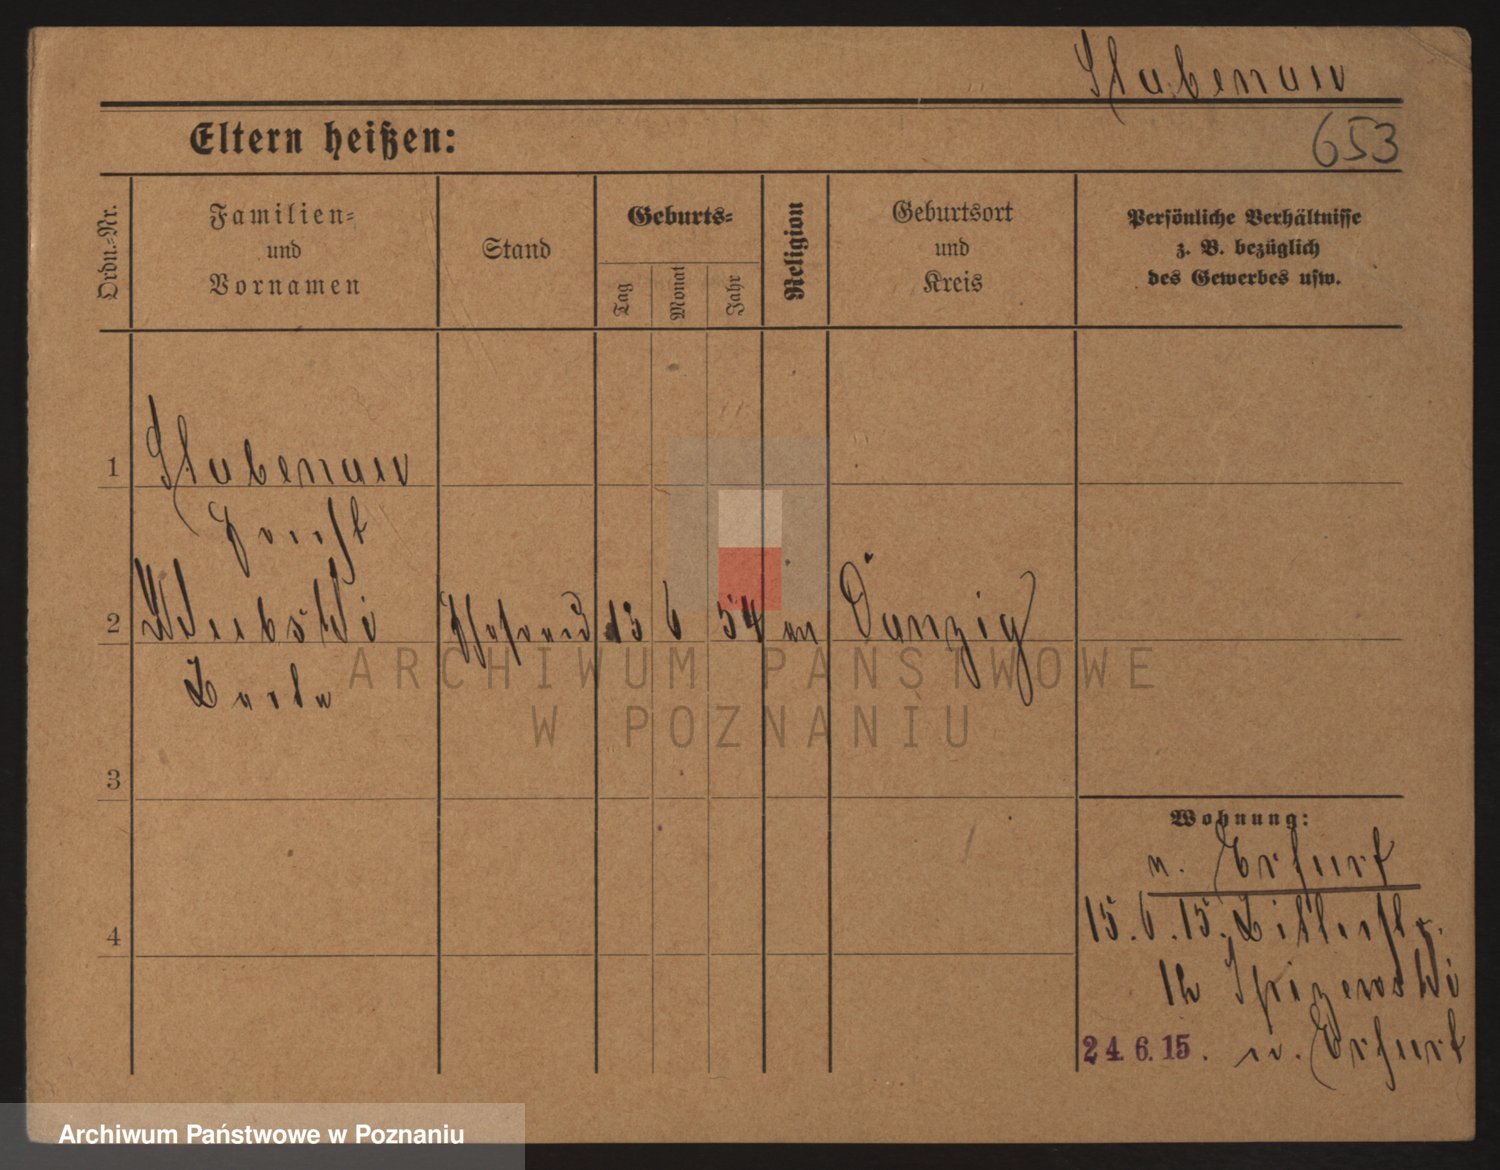 Stabenau
Eltern heißen:
653
Ordn.-Nr.
Familien-
und
Vornamen
Stand
Geburts-
Tag
Monat
Jahr
Religion
Geburtsort
und
Kreis
Persönliche Verhältnisse
z. B. bezüglich
des Gewerbes usw.
1
Stabenau
Horst
2
13 6 54 Danzig
3
Wohnung:
n. Erfurt
15. 6. 15.
4
24. 6. 15. Erfurt
ARCHIWUM PAŃSTWOWE
W POZNANIU
Archiwum Państwowe w Poznaniu